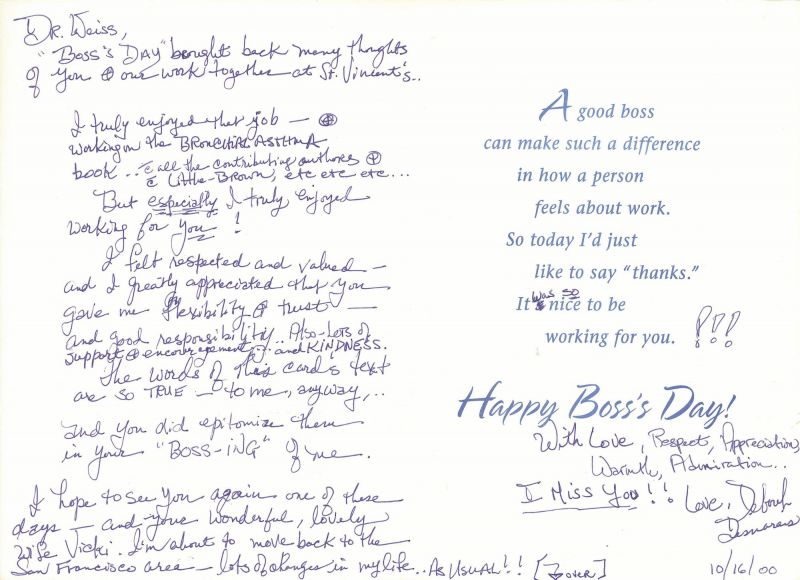 Dr. Weiss,
"Boss's Day" brought back many thoughts
of you & our work together at St. Vincent's..
I truly enjoyed that job — &
working on the BRONCHIAL ASTHMA
book... c all the contributing authores &
c Little-Brown, etc etc etc...
But especially I truly enjoyed
working for you !
I felt respected and valued —
and I greatly appreciated that you
gave me flexibility & trust —
and good responsibility... Also-Lots of
support & encouragement... and KINDNESS.
The words of this card's text
are so TRUE — to me, anyway,..
and you did epitomize them
in your "BOSS-ING" of me.
I hope to see you again one of these
days — and your wonderful, lovely
wife Vicki. I'm about to move back to the
San Francisco area — lots of changes in my life.. AS USUAL!! [over]
A good boss
can make such a difference
in how a person
feels about work.
So today I'd just
like to say "thanks."
It was so nice to be
working for you. !!!
Happy Boss's Day!
With Love, Respect, Appreciation,
Warmth, Admiration..
I Miss You!! Love, Deborah
Desmarais
10/16/00